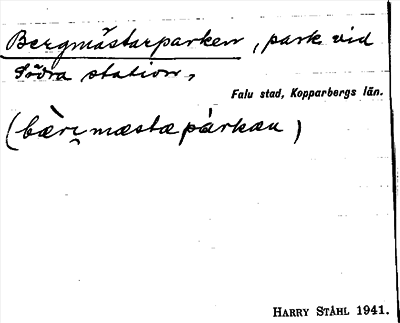 Bergmästarparken, park vid
Södra station,
Falu stad, Kopparbergs län.
(bærjmæstapárkan)
HARRY STÅHL 1941.